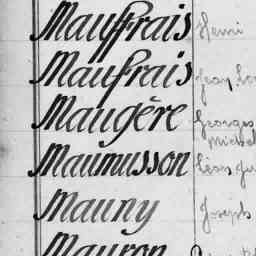 Mauffrais Henri
Maufrais Jean Lo
Maugère Georges
Michel
Maumusson Léon Ju
Mauny Joseph
Mauron